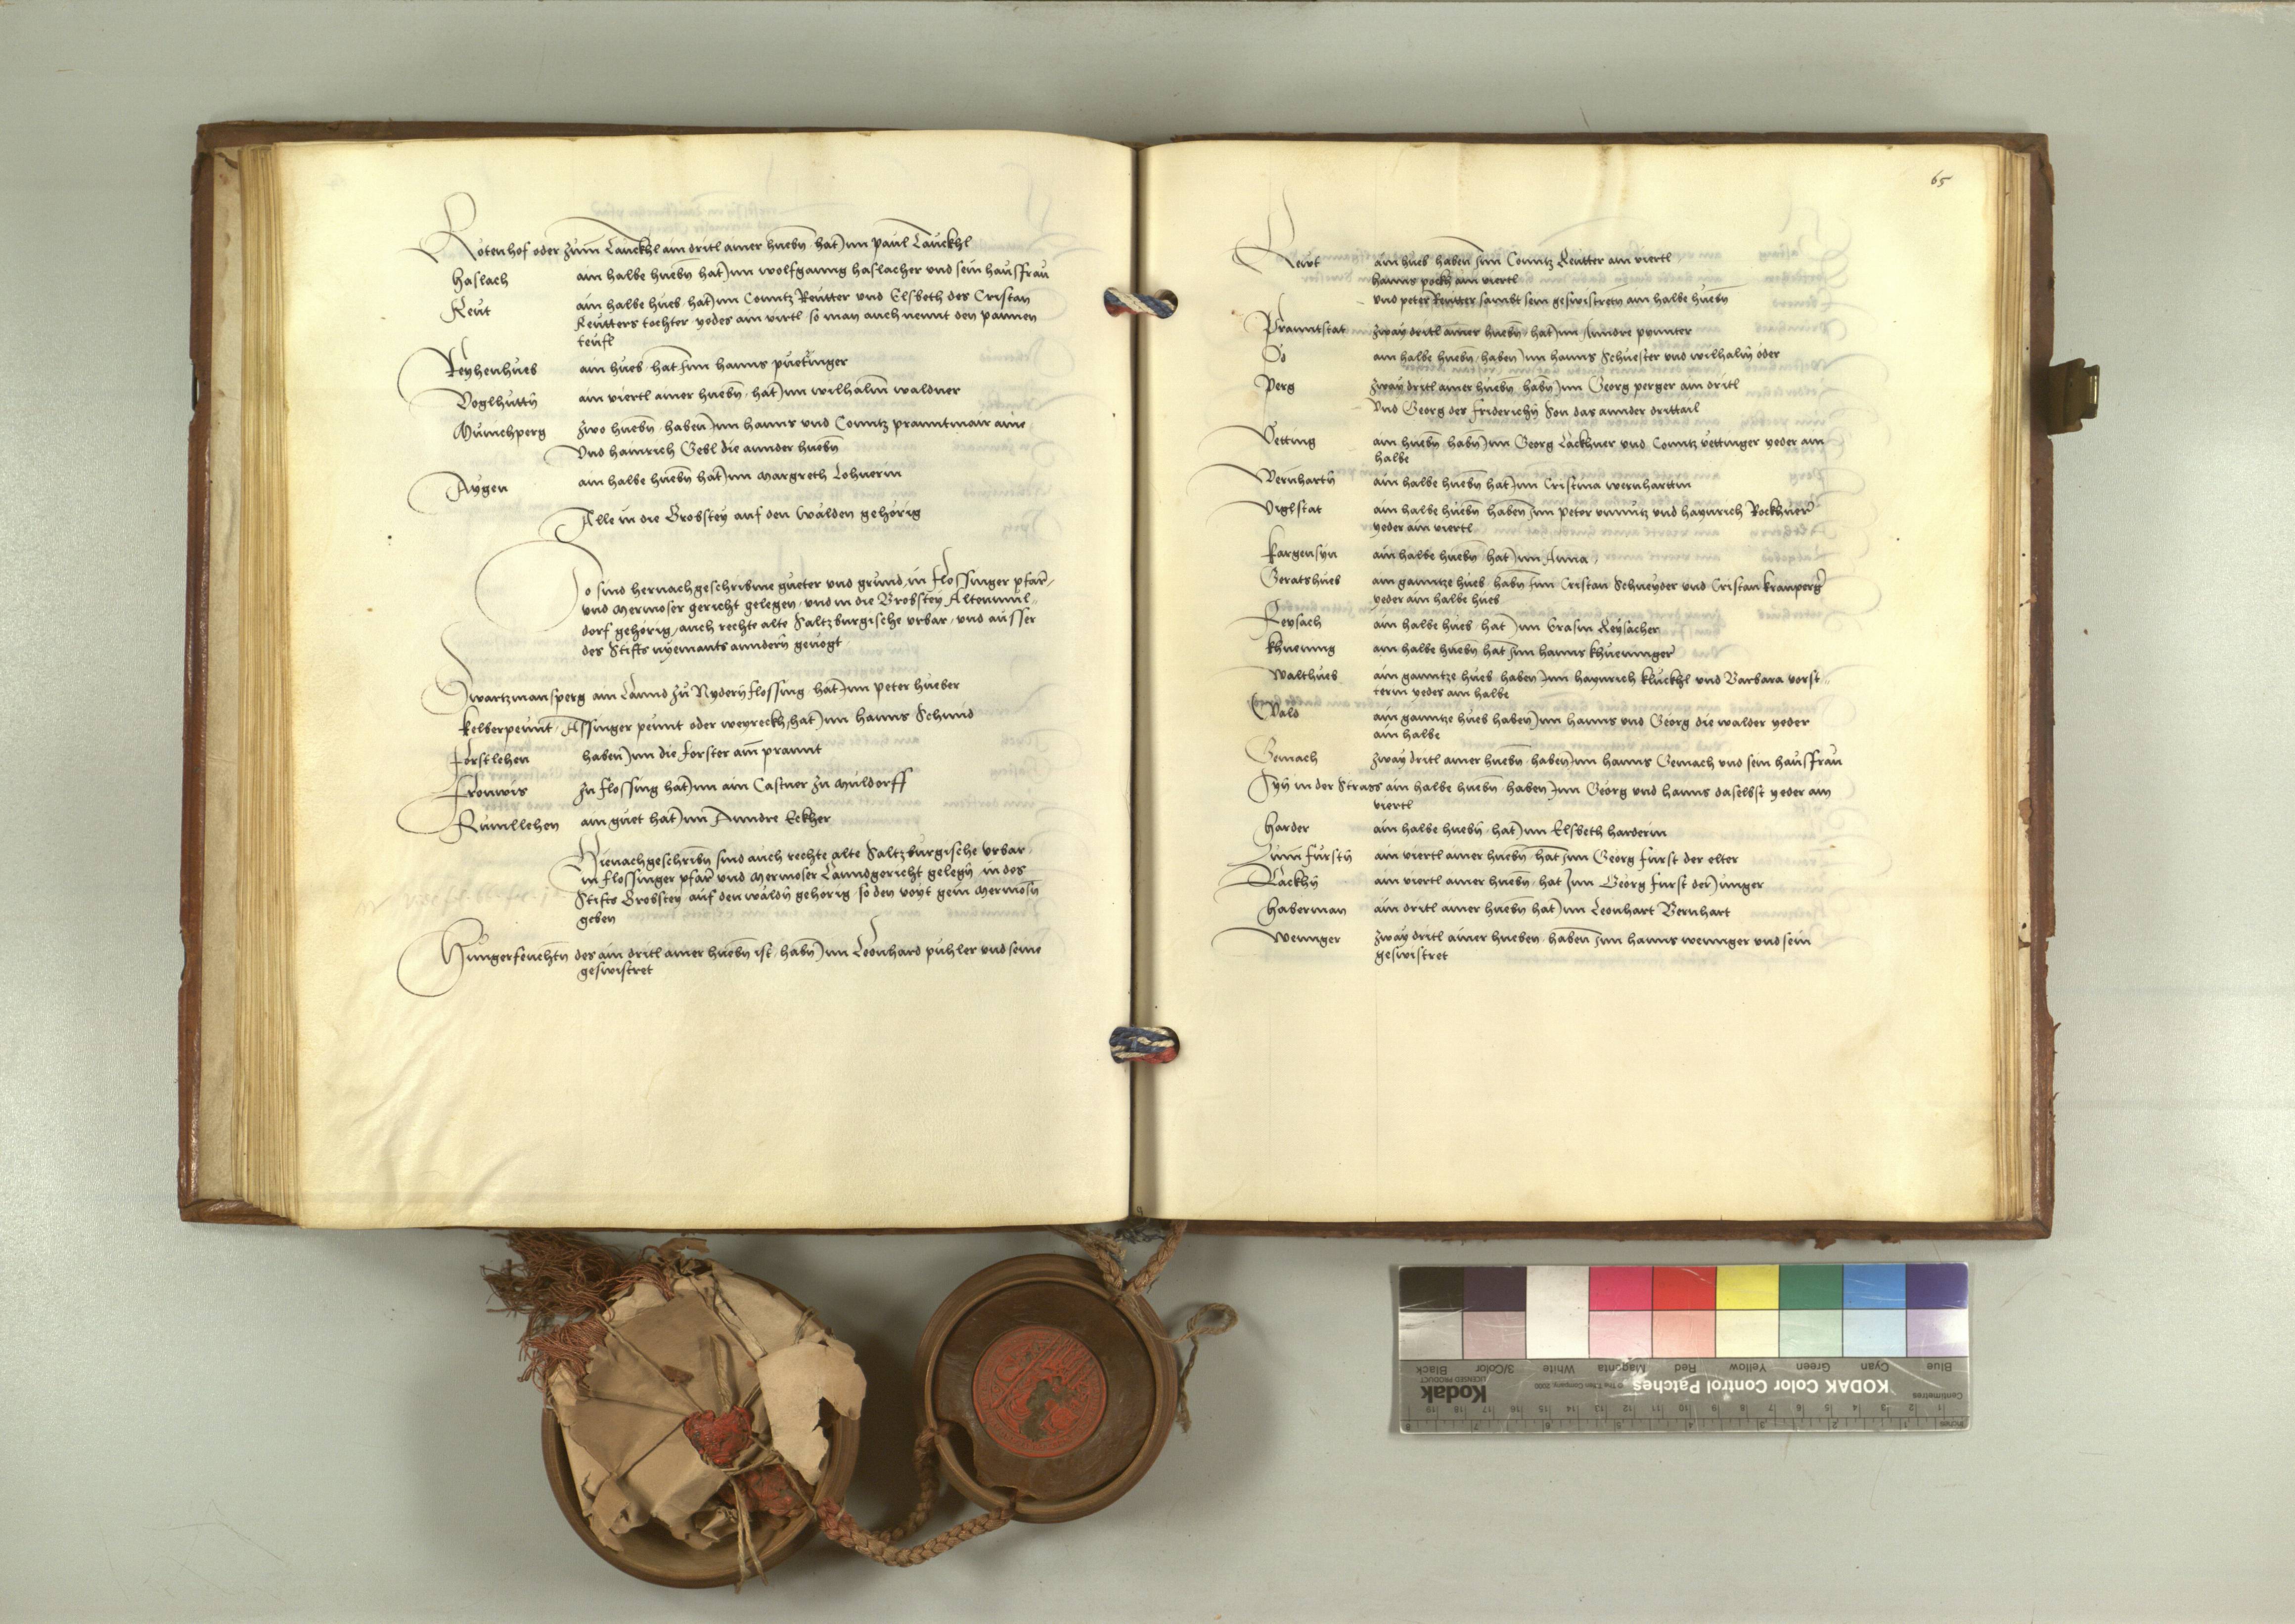 Rotenhof oder zum Lauckhl ain dritl ainer huebn hat Jnn paul Lauckhl
Haslach ain halbe huebn hat Jnn wolfganng haslacher vnd sein haussfrau
Reut ain halbe hueb hat Jnn Conntz Reutter vnd Elsbeth des Cristan
Reutters tochter yedes ain virtl so man auch nennt den pannen
teufl
Reyhenhueb ain hueb hat Jnn hanns puetinger
Voglhutty ain viertl ainer huebn hat Jnn wilhalm waldner
Munichperg zwo huebn haben Jnn hanns vnd Conntz pranntmair aine
Vnd hainrich Gebl die annder huebn
Aygen ain halbe huebn hat Jnn Margreth Lohnerin
Alle in die Brobstey auf den walden gehorig
So sind hernachgeschribne gueter vnd grund in flossinger pfar
vnd Mermoser gericht gelegen vnd in die Brobstey Altenmul
dorf gehorig auch rechte alte Saltzburgische vrbar vnd ausser
des Stifts nyemants anndern gevogt
Swartzmansperg ain Lannd zu Nydernflossing hat Jnn peter hueber
Kelberpeunt Assinger peunt oder weyreckh hat Jnn hanns Schmid
Forstlehen haben Jnn die forster am prannt
Fronwis zu flossing hat Jnn ain Castner zu Muldorff
Rumllehen ain guet hat Jnn Anndre Eckher
Hienachgeschribn sind auch rechte alte Saltzburgische vrbar
in flossinger pfar vnd Mermoser Lanndgericht gelegn in des
Stifts Brobstey auf den waldn gehorig so den voyt gein Mermosn
geben
Hungerfeuchtn des ain dritl ainer huebn ist habn Jnn Leonhard puhler vnd seine
geswistret
65
Reut ain hueb haben Jnn Conntz Reutter ain viertl
hanns pockh ain viertl
vnd peter Reutter sambt sein geswistretn ain halbe huebn
Pranntstat zway dritl ainer huebn hat Jnn Anndre prunter
Öd ain halbe huebn haben Jnn hanns Schuester vnd wilhalm öder
Perg zway dritl ainer huebn habn Jnn Georg perger ain dritl
Vnd Georg des friderichn Son das annder drittail
Vetting ain huebn habn Jnn Georg Lackhner vnd Conntz vettinger yeder ain
halbe
Wernhartn ain halbe huebn hat Jnn Cristina wernhartin
Viglstat ain halbe huebn haben Jnn peter vnnutz vnd haynrich Rockhner
yeder ain viertl
Kargensyn ain halbe huebn hat Jnn Anna
Geratshueb ain ganntze hueb habn Jnn Cristan Schneyder vnd Cristan kranperg
yeder ain halbe hueb
Reysach ain halbe hueb hat Jnn Erasm Reysacher
Khuenng ain halbe huebn hat Jnn hanns khuenninger
Walthueb ain ganntze hueb haben Jnn haynrich kluckhl vnd Barbara vorst
terin yedes ain halbe
Wald ain ganntze hueb haben Jnn hanns vnd Georg die walder yeder
ain halbe
Gemach zway dritl ainer huebn haben Jnn hanns Gemach vnd sein haussfrau
Syn in der Strass ain halbe huebn haben Jnn Georg vnd hanns daselbst yeder ain
viertl
Harder ain halbe huebn hat Jnn Elsbeth harderin
Zum furstn ain viertl ainer huebn hat Jnn Georg furst der elter
Lackhn ain viertl ainer huebn hat Jnn Georg furst der Junger
Haberman ain dritl ainer huebn hat Jnn Leonhart Bernhart
Wennger zway dritl ainer hueben haben Jnn hanns wennger vnd sein
geswistret
KODAK Color Control Patches
Kodak
LICENSED PRODUCT
© The Tiffen Company, 2000
Blue Cyan Green Yellow Red Magenta White 3/Color Black
Centimetres
Inches